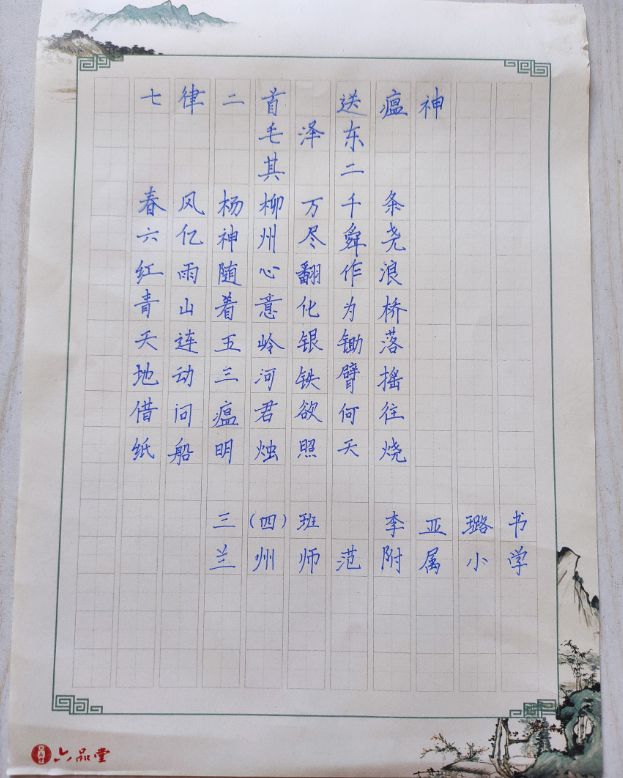 七律二首 送瘟神
毛泽东
其二
春风杨柳万千条
六亿神州尽舜尧
红雨随心翻作浪
青山着意化为桥
天连五岭银锄落
地动三河铁臂摇
借问瘟君欲何往
纸船明烛照天烧
三(四)班 李亚璐书
兰州师范附属小学
六品堂